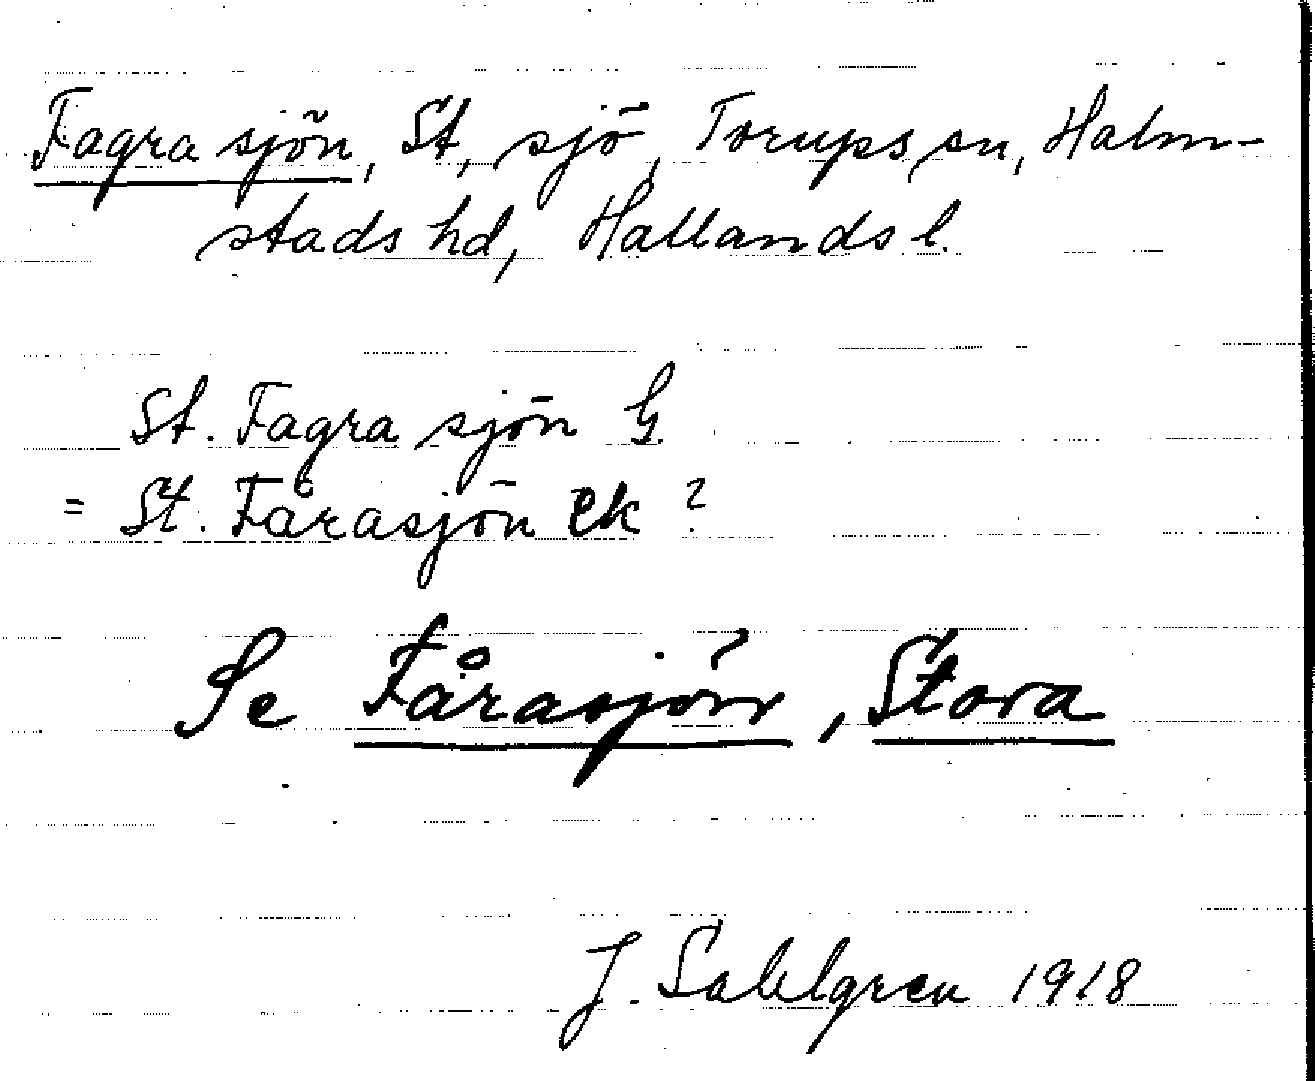 Fagra sjön, St, sjö, Torups sn, Halm-
stads hd, Hallands l.
St. Fagra sjön G.
= St. Fårasjön ek ?
Se Fårasjön, Stora
J. Sahlgren 1918